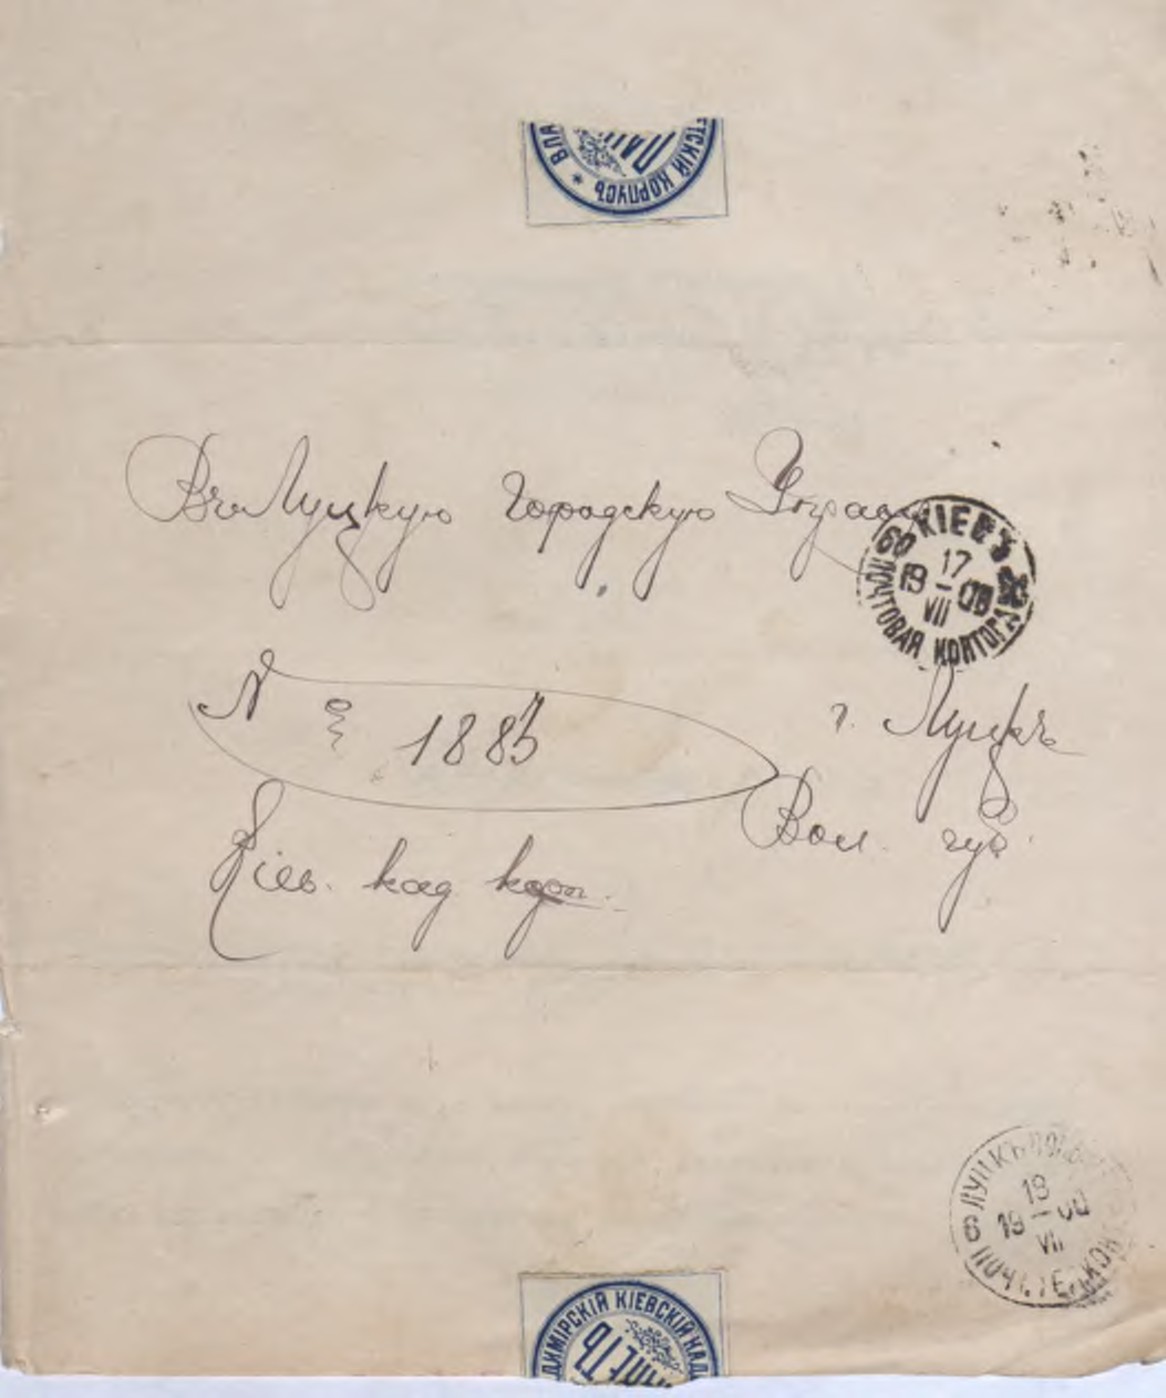 ВЛА ЕТСКІЙ КОРПУСЪ *
Въ Луцкую Городскую Управу
КІЕВЪ
60
17
19 - 08
VII
ПОЧТОВАЯ КОНТОРА
№ 1883
г. Луцкъ
Вол. губ.
Кіев. кад. корп.
ЛУЦКЪ
6
19
19 - 08
VII
ПОЧТ. ТЕЛ. КОН
ДИМІРСКІЙ КІЕВСКІЙ КАД